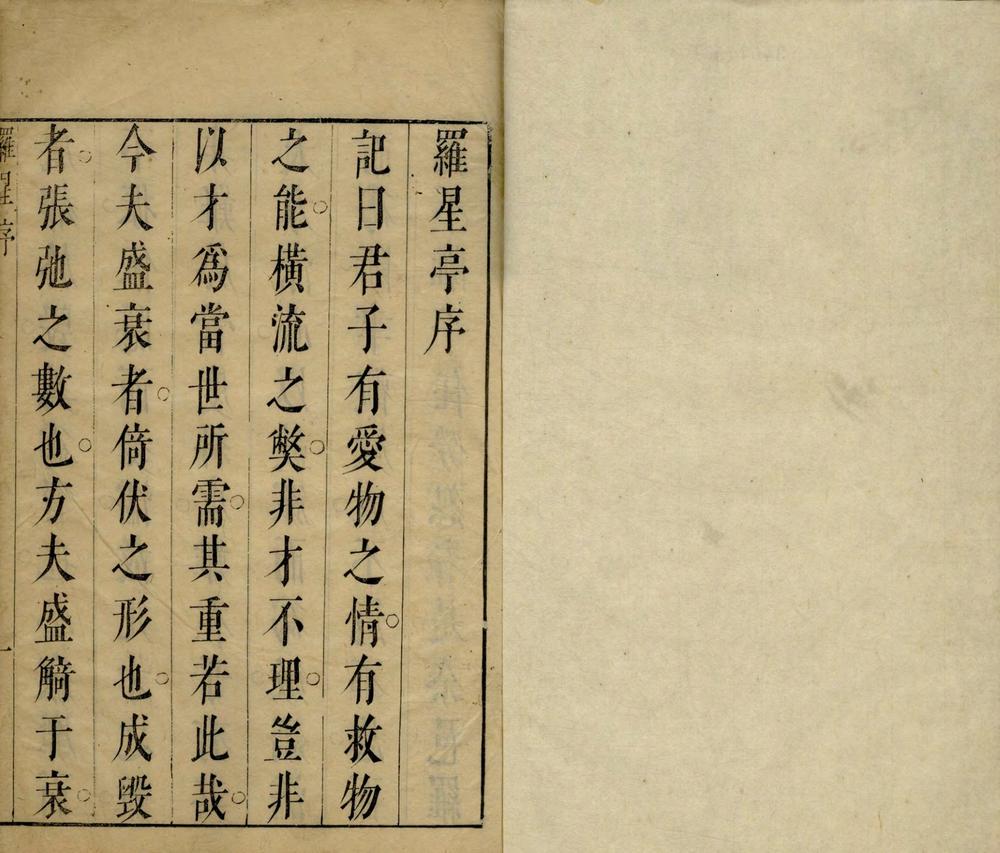 羅星亭序
記曰君子有愛物之情○有救物
之能○橫流之獘○非才不理○豈非
以才爲當世所需○其重若此哉○
今夫盛衰者○倚伏之形也○成毀
者○張弛之數也○方夫盛觭于衰○
羅星序 一